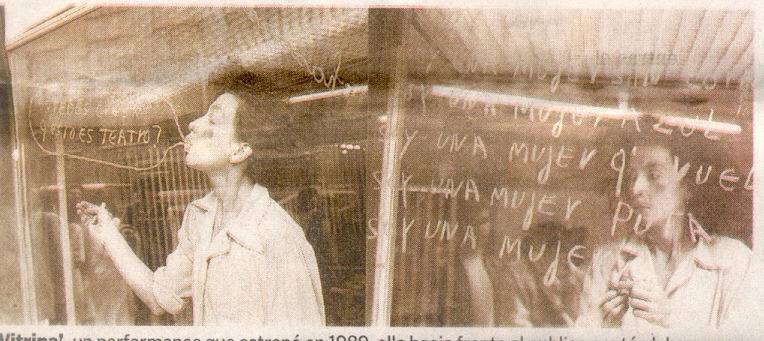 ¿ESTO ES TEATRO?
UNA MUJER SIN
Y UNA MUJER AZUL
Y UNA MUJER Q' VUEL
SY UNA MUJER PUTA
SY UNA MUJE
Vitrina', un performance que estrenó en 1989, ella hacía frente al público